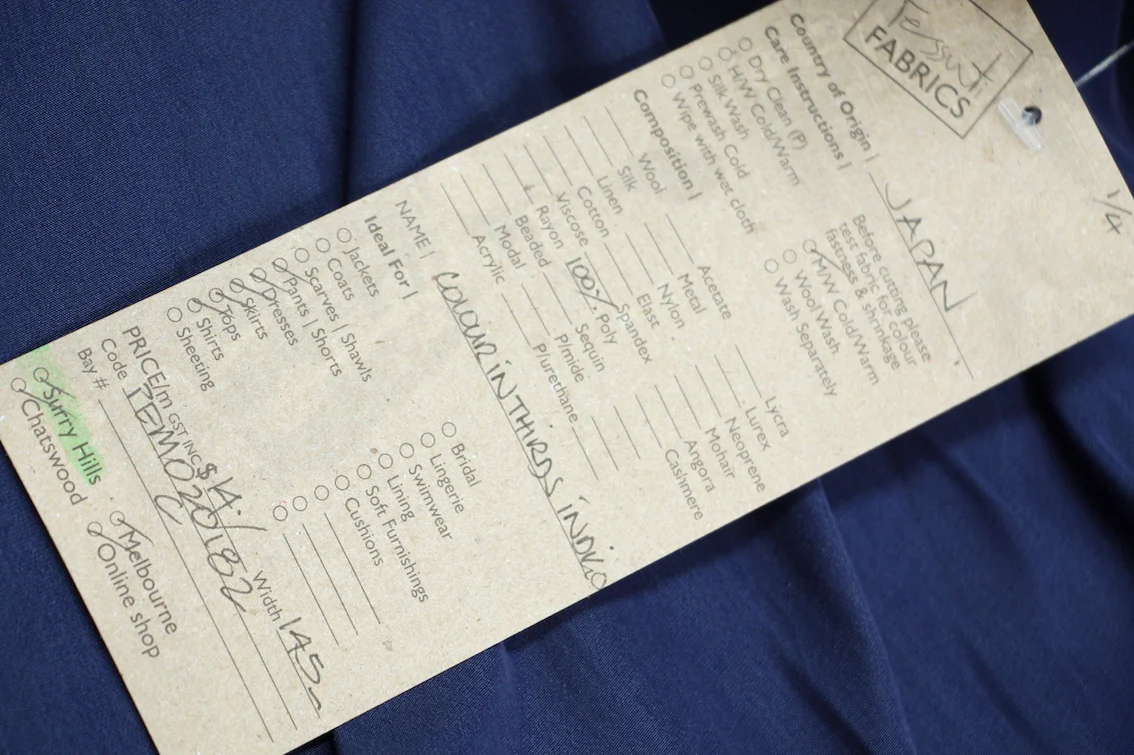 1/4
Tessuti
FABRICS
Country of Origin | JAPAN
Care Instructions |
Dry Clean (P)
H/W Cold/Warm
Silk Wash
Prewash Cold
Wipe with wet cloth
Before cutting please
test fabric for colour
fastness & shrinkage
M/W Cold/Warm
Wool Wash
Wash Separately
Composition |
Wool
Silk
Linen
Cotton
Viscose
Rayon
Beaded
Modal
Acrylic
Acetate
Metal
Nylon
Elast
Spandex
100% Poly
Sequin
P/mide
P/urethane
Lycra
Lurex
Neoprene
Mohair
Angora
Cashmere
NAME | COLOUR IN THIRDS INDIGO
Ideal For |
Jackets
Coats
Scarves | Shawls
Pants | Shorts
Dresses
Skirts
Tops
Shirts
Sheeting
Bridal
Lingerie
Swimwear
Lining
Soft Furnishings
Cushions
PRICE/m GST INC $ 14.- Width 145
Code TEMO20182
Bay #
Surry Hills
Chatswood
Melbourne
Online shop